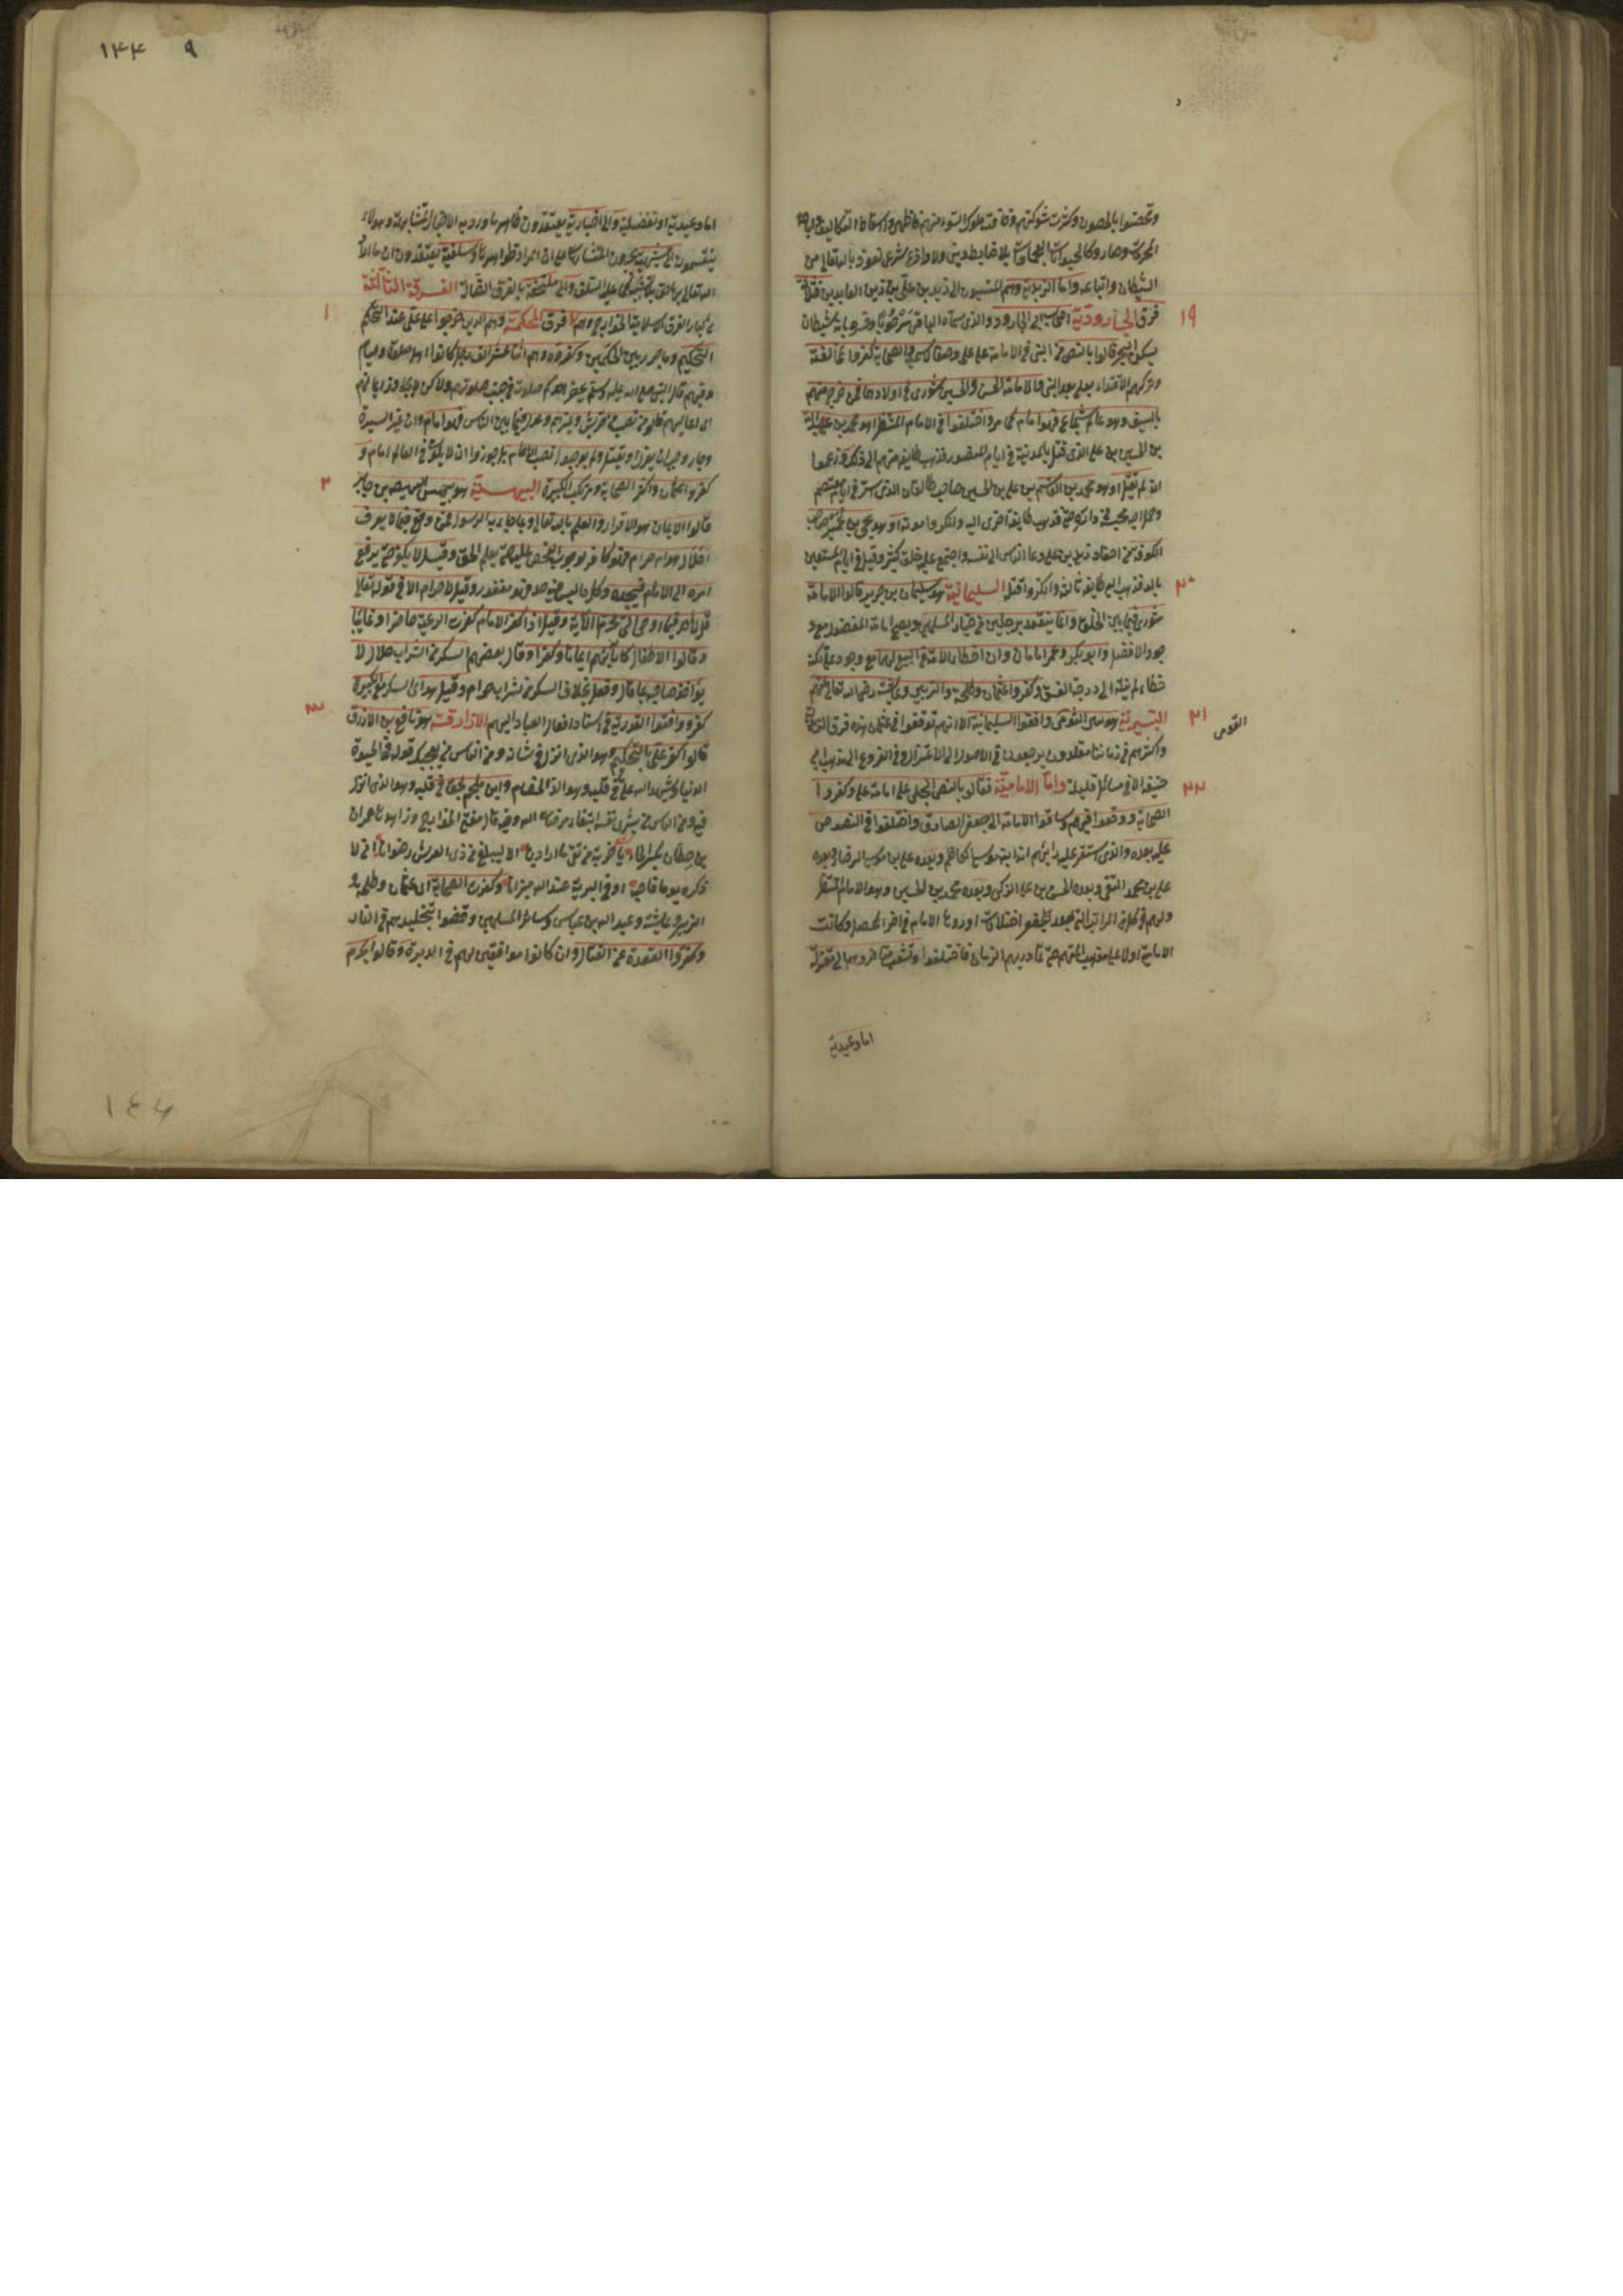 وتحصنوا بالحصون وكثرت شوكتهم وخافت ملوك السوء منهم فاظهروا اسقاط التكاليف واباحة
المحرمات وصاروا كالحيوانات العجماوات بلا ضابط ديني ولا وازع شرعي نعوذ بالله تعالى من
الشيطان واتباعه واما الزيدية وهم المنسبون الى زيد بن علي بن زين العابدين فثلاث
١٩ فرق الجارودية اصحاب ابي الجارود والذي سماه الباقر سرحوبا وفسره بانه شيطان
يسكن البحر قالوا بالنص من النبي في الامامة على علي وصفا لا تسمية والصحابة كفروا بمخالفته
وتركهم الاقتداء بعلي بعد النبي والامامة بعد الحسن والحسين شورى في اولادهما فمن خرج منهم
بالسيف وهو عالم شجاع فهو امام كما مر واختلفوا في الامام المنتظر اهو محمد بن عبد الله
بن الحسين بن علي الذي قتل بالمدينة في ايام المنصور فذهب طايفة منهم الى ذلك وزعموا
انه لم يقتل او هو محمد بن القاسم بن علي بن الحسين صاحب طالقان الذي اسر في ايام المعتصم
وحمل اليه فحبسه في داره حتى مات فذهب طايفة اخرى اليه وانكروا موته او هو يحيى بن عمير صاحب
الكوفة من احفاد زيد بن علي دعا الناس الى نفسه واجتمع عليه خلق كثير وقتل في ايام المستعين
٢٠ بالله فذهب اليه طايفة ثالثة وانكروا قتله السليمانية هو سليمان بن جرير قالوا الامامة
شورى فيما بين الخلق وانما ينعقد برجلين من خيار المسلمين ويصح امامة المفضول مع و
جود الافضل وابو بكر وعمر امامان وان اخطأ الامة في البيع لهما مع وجود علي لكنه
خطاء لم ينته الى درجة الفسق وكفروا عثمان وطلحة والزبير وعايشة رضي الله تعالى عنهم
٢١ البتيرية هو بتير الثومي وافقوا السليمانية الا انهم توقفوا في عثمان هذه فرق الزيدية
القومى
واكثرهم في زماننا مقلدون يرجعون في الاصول الى الاعتزال وفي الفروع الى مذهب ابي
٢٢ حنيفة الا في مسائل قليلة واما الامامية فقالوا بالنص الجلي على امامة علي وكفروا
الصحابة ووقعوا فيهم وساقوا الامامة الى جعفر الصادق واختلفوا في المنصوص
عليه بعده والذي استقر عليه رايهم انه ابنه موسى الكاظم وبعده علي بن موسى الرضا وبعده
علي بن محمد النقي وبعده الحسن بن علي الزكي وبعده محمد بن الحسين وهو الامام المنتظر
ولهم في كل من المراتب التي بعد جعفر اختلافات اوردها الامام في اخر المحصل وكانت
الامامية اولا على مذهب ائمتهم حتى تمادى بهم الزمان فاختلفوا وتشعب متاخروهم الى معتزلة
اما وعيدية
٩ ١٤٤
اما وعيدية او تفضلية والى اخبارية يعتقدون ظاهر ما ورد به الاخبار المتشابهة وهولاء
ينقسمون الى مشبهة يجرون المتشابهات على ان المراد ظواهرها وسلفية يعتقدون ان ما اراد
الله تعالى بها حق بلا تشبيه كما عليه السلف والى ملتحقة بالفرق الضالة الفرقة الثالثة
١ من كبار الفرق الاسلامية الخوارج وهم ٧ فرق المحكمة وهم الذين خرجوا على علي عند التحكيم
التحكيم وما جرى بين الحكمين وكفروه وهم اثنا عشر الف رجل كانوا اهل صلوة وصيام
وفيهم قال النبي صلى الله عليه وسلم يحقر احدكم صلاته في جنب صلوتهم ولكن لا يجاوز ايمانهم
اى ايمانهم قالوا من نصب من قريش وغيرهم وعدل فيما بين الناس فهو امام وان غير السيرة
وجار وجب ان يعزل او يقتل ولم يوجبوا نصب الامام بل جوزوا ان لا يكون في العالم امام و
٢ كفروا عثمان واكثر الصحابة ومرتكب الكبيرة البيهسية هو بيهس الهيصم بن جابر
قالوا الايمان هو الاقرار والعلم بالله تعالى وبما جاء به الرسول فمن وقع فيما لا يعرف
احلال هو ام حرام فهو كافر لوجوب الفحص عليه حتى يعلم الحق وقيل لا يكفر حتى يرفع
امره الى الامام فيحده وكل ما ليس فيه حد فهو مغفور وقيل لا حرام الا في قوله تعالى
قل لا اجد فيما اوحي الي محرما الآية وقيل اذا كفر الامام كفرت الرعية حاضرا وغائبا
وقالوا الاطفال كآبائهم ايمانا وكفرا وقال بعضهم السكر من الشراب حلال لا
يؤاخذ صاحبه بما قال وفعل بخلاف السكر من شراب حرام وقيل هو اى السكر مع الكبيرة
٣ كفر ووافقوا القدرية في اسناد افعال العباد اليهم الازارقة هو نافع بن الازرق
قالوا كفر علي بالتحكيم وهو الذي انزل في شانه ومن الناس من يعجبك قوله في الحيوة
الدنيا ويشهد الله على ما في قلبه وهو الد الخصام وابن ملجم محق في قتله وهو الذي انزل
فيه ومن الناس من يشري نفسه ابتغاء مرضات الله وفيه قال مفتي الخوارج وزاهدها عمران
بن حطان يا ضربة من تقي ما اراد بها الا ليبلغ من ذي العرش رضوانا اني لا
ذكره يوما فاحسبه اوفى البرية عند الله ميزانا وكفرت الصحابة اى عثمان وطلحة و
الزبير وعايشة وعبد الله بن عباس وسائر المسلمين وقضوا بتخليدهم في النار
وكفروا القعدة عن القتال وان كانوا موافقين لهم في الدين وقالوا يحرم
١٤٤